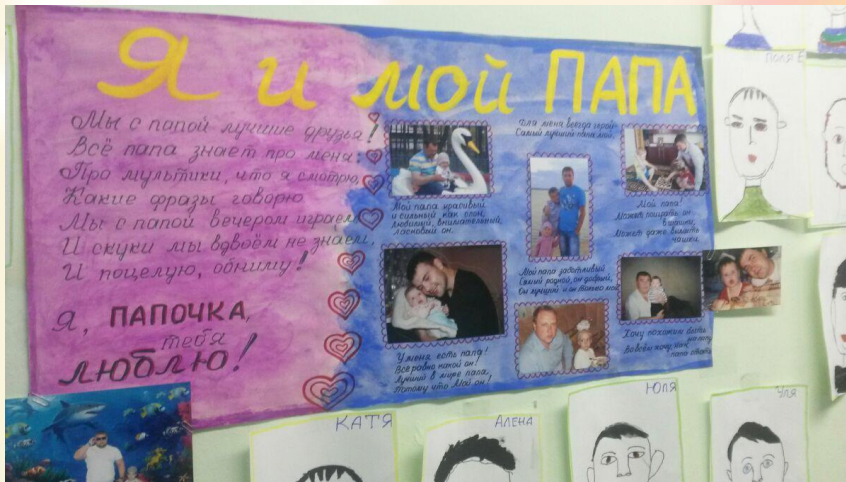 Я и мой ПАПА
Мы с папой лучшие друзья!
Всё папа знает про меня:
Про мультики, что я смотрю,
Какие фразы говорю.
Мы с папой вечером играем
И скуки мы вдвоём не знаем,
И поцелую, обниму!
Я, ПАПОЧКА,
тебя
ЛЮБЛЮ!
Для меня всегда герой-
Самый лучший папа мой.
Мой папа красивый
и сильный как слон,
Любимый, внимательный,
ласковый он.
Мой папа!
Может поиграть он
в
Может даже вымыть
чашки.
Мой папа заботливый
Самый родной, он добрый,
Он лучший и он только мой
У меня есть папа!
Всё равно какой он!
Лучший в мире папа,
Потому что Мой он!
Хочу похожим быть
Во всём хочу, как
папа
ПОЛЯ Е
КАТЯ
АЛЕНА
ЮЛЯ
УЛЯ